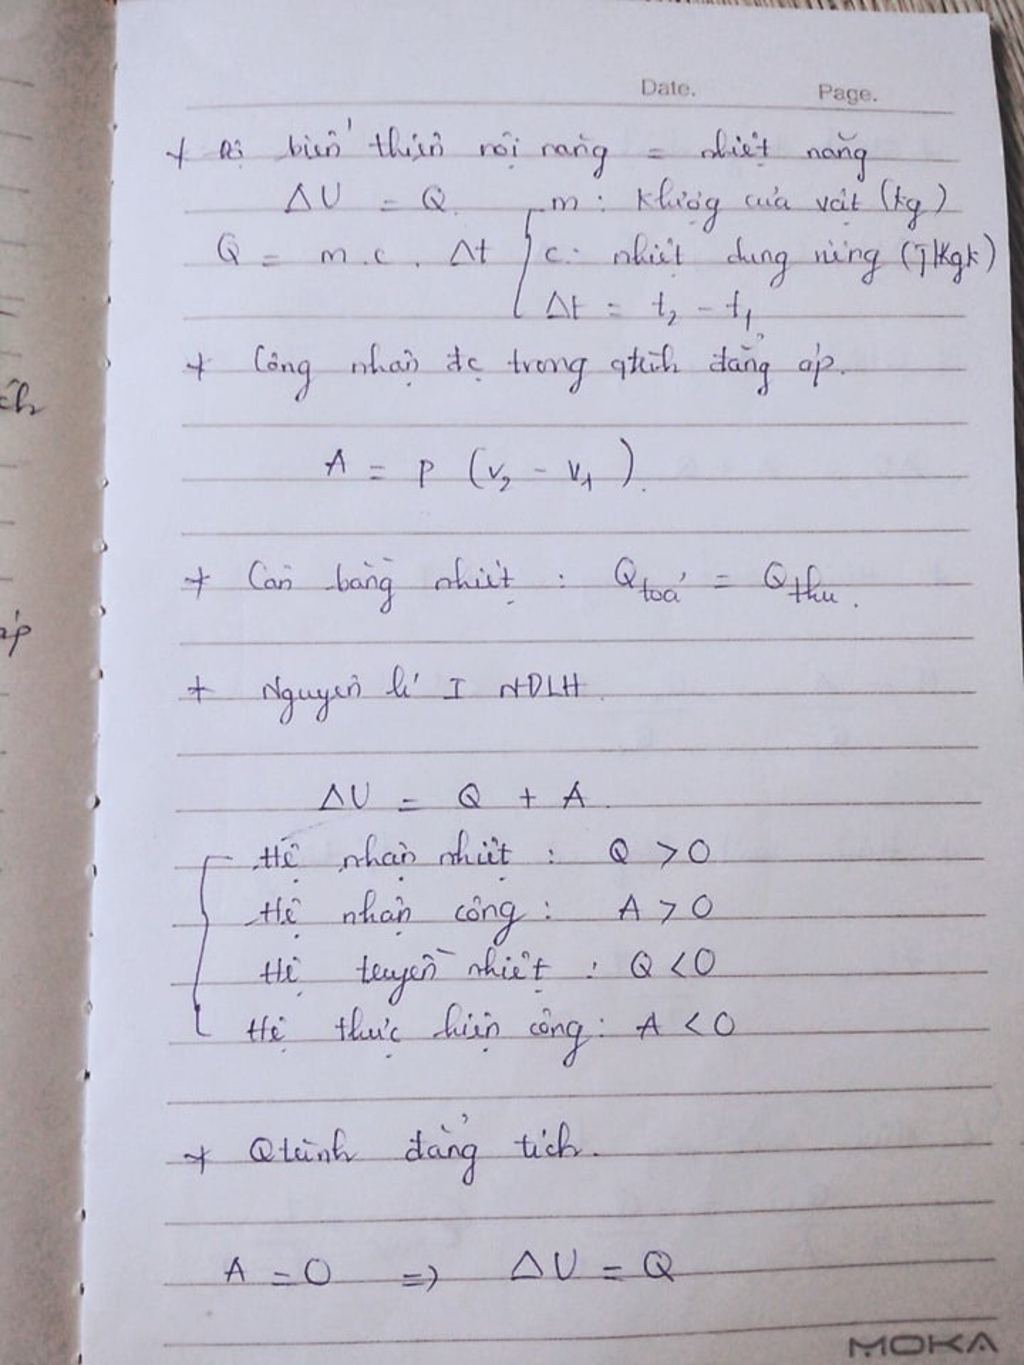 Date. Page.
+ Độ biến thiên nội năng = nhiệt năng
ΔU = Q. m : Khlượng của vật (kg)
Q = m.c. Δt c : nhiệt dung riêng (J/Kgk)
Δt = t₂ - t₁
+ Công nhận đc trong qtrình đẳng áp.
A = P (V₂ - V₁).
+ Cân bằng nhiệt : Q toả = Q thu.
+ Nguyên lí I NĐLH.
ΔU = Q + A.
Hệ nhận nhiệt : Q > 0
Hệ nhận công : A > 0
Hệ truyền nhiệt : Q < 0
Hệ thực hiện công : A < 0
+ Qtrình đẳng tích.
A = 0 => ΔU = Q
MOKA